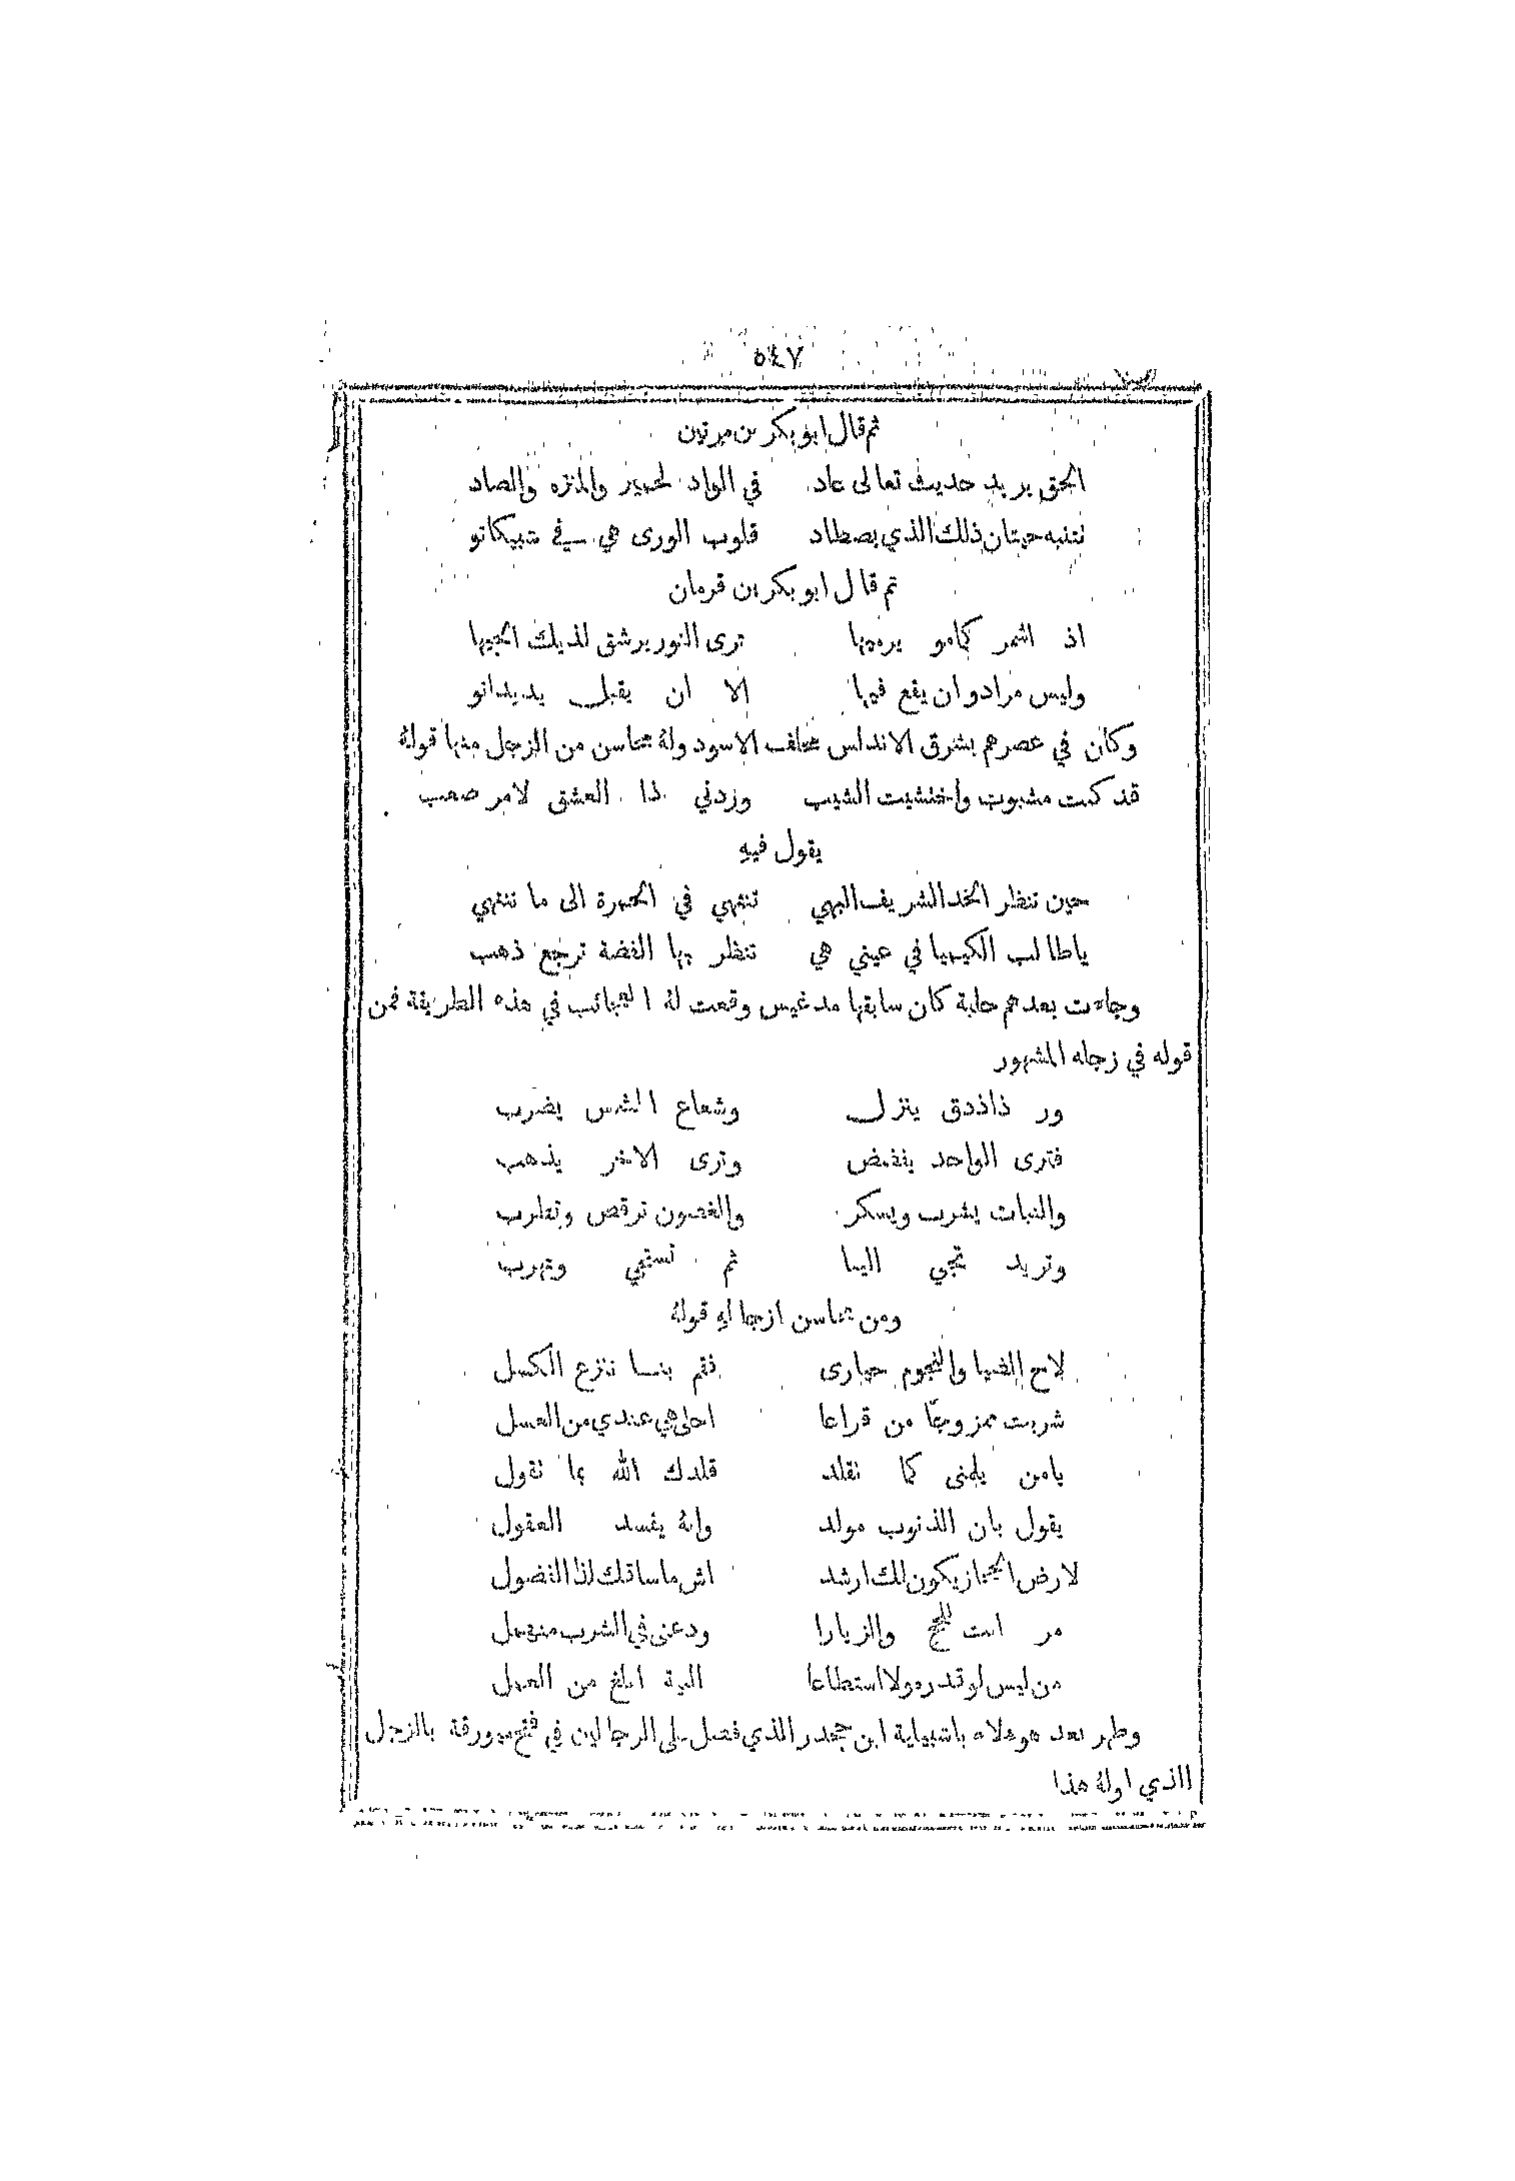 ٥٤٧
ثم قال ابو بكر بن مرتين
الحق يريد حديث تعالى عاد في الواد لحمير والمنزه والصاد
نتنبه حيتان ذلك الذي يصطاد قلوب الورى هي في شبيكاتو
ثم قال ابو بكر بن قزمان
اذ اشمر كمامو يرميها ترى النور يرشق لذيك الجيها
وليس مرادو ان يقع فيها الا ان يقبل يديداتو
وكان في عصرهم بشرق الاندلس مخلف الاسود وله محاسن من الزجل منها قوله
قد كنت مشبوب واختشيت الشيب وزدني ذا العشق لامر صعب
يقول فيه
حين تنظر الخد الشريف البهي تنتهي في الخمرة الى ما تنتهي
ياطالب الكيميا في عيني هي تنظر بها الفضة ترجع ذهب
وجاءت بعدهم حلبة كان سابقها مدغيس وقعت له العجائب في هذه الطريقة فمن
قوله في زجله المشهور
ور ذاذ دق ينزل وشعاع الشمس يضرب
فترى الواحد يفضض وترى الاخر يذهب
والنبات يشرب ويسكر والغصون ترقص وتطرب
وتريد تجي الينا ثم تستحي وتهرب
ومن محاسن ازجاله قوله
لاح الضيا والنجوم حيارى فقم بنا ننزع الكسل
شربت ممزوجًا من قراعا احلى هي عندي من العسل
يامن يلمني كما نقلد قلدك الله بما تقول
يقول بان الذنوب مولد وانه يفسد العقول
لارض الحجاز يكون لك ارشد اش ما ساقك لذا الفضول
مر انت للحج والزيارا ودعني في الشرب منهمل
من ليس لو قدره ولا استطاعا النية ابلغ من العمل
وظهر بعد هوءلاء باشبيلية ابن جحدر الذي فضل على الزجالين في فتح ميورقة بالزجل
الذي اوله هذا